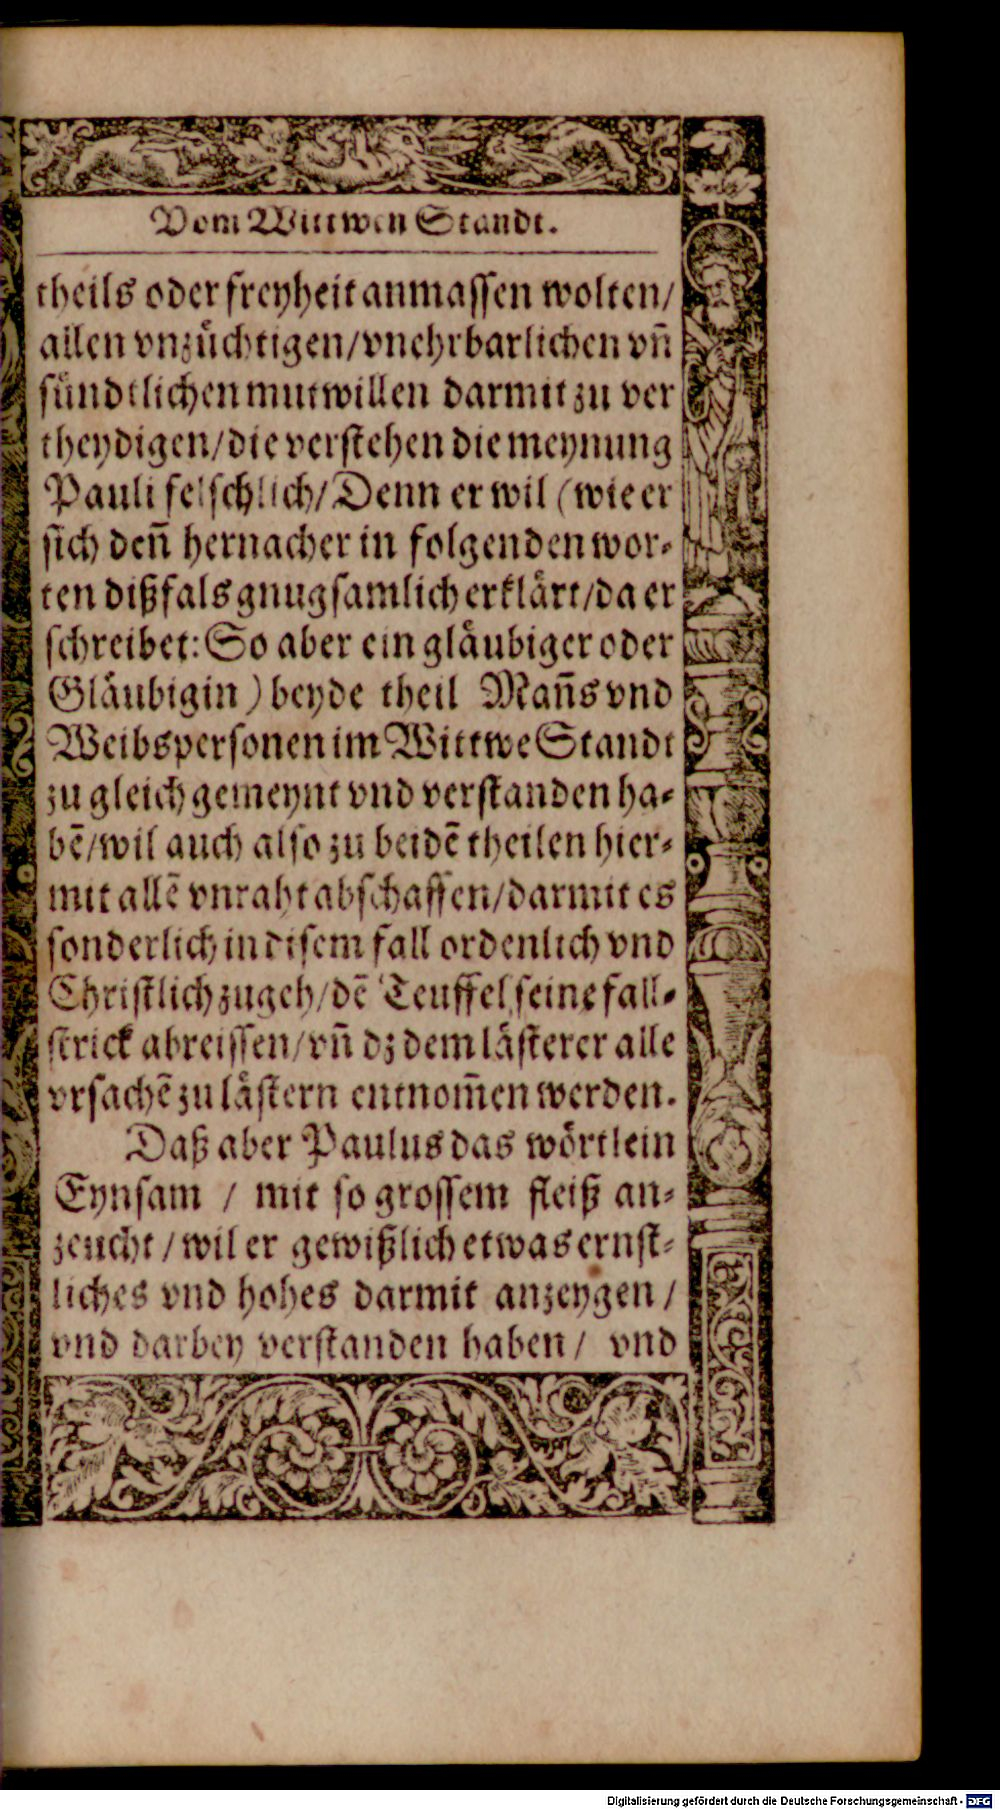 Vom Wittwen Standt.
theils oder freyheit anmassen wolten/
allen vnzüchtigen/vnehrbarlichen vñ
sündtlichen mutwillen darmit zu ver
theydigen/die verstehen die meynung
Pauli felschlich/Denn er wil (wie er
sich deñ hernacher in folgenden wor-
ten dißfals gnugsamlich erklärt/da er
schreibet: So aber ein gläubiger oder
Gläubigin) beyde theil Mañs vnd
Weibspersonen im Wittwe Standt
zu gleich gemeynt vnd verstanden ha-
bē/wil auch also zu beidē theilen hier-
mit allē vnraht abschaffen/darmit es
sonderlich in disem fall ordenlich vnd
Christlich zugeh/dē Teuffel seine fall-
strick abreissen/vñ dz dem lästerer alle
vrsachē zu lästern entnom̄en werden.
Daß aber Paulus das wörtlein
Eynsam / mit so grossem fleiß an-
zeucht / wil er gewißlich etwas ernst-
liches vnd hohes darmit anzeygen /
vnd darbey verstanden haben / vnd
Digitalisierung gefördert durch die Deutsche Forschungsgemeinschaft - DFG